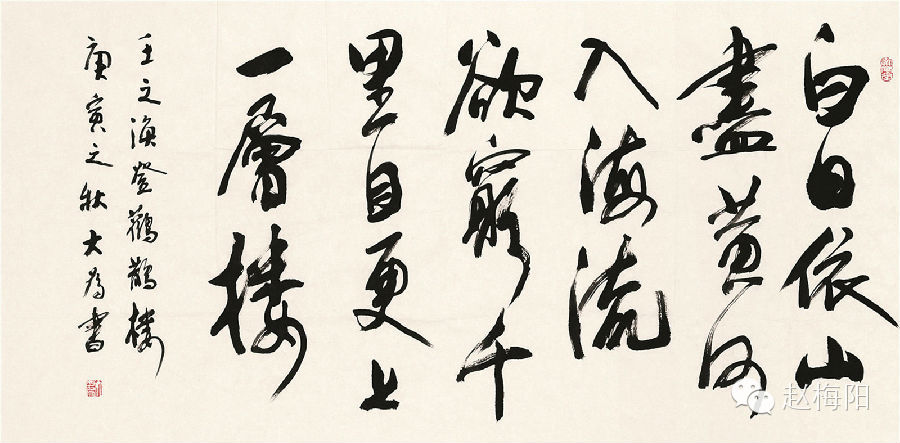 白日依山
盡黄河
入海流
欲窮千
里目更上
一層樓
王之渙登鸛鵲樓
庚寅之秋大為書
赵梅阳